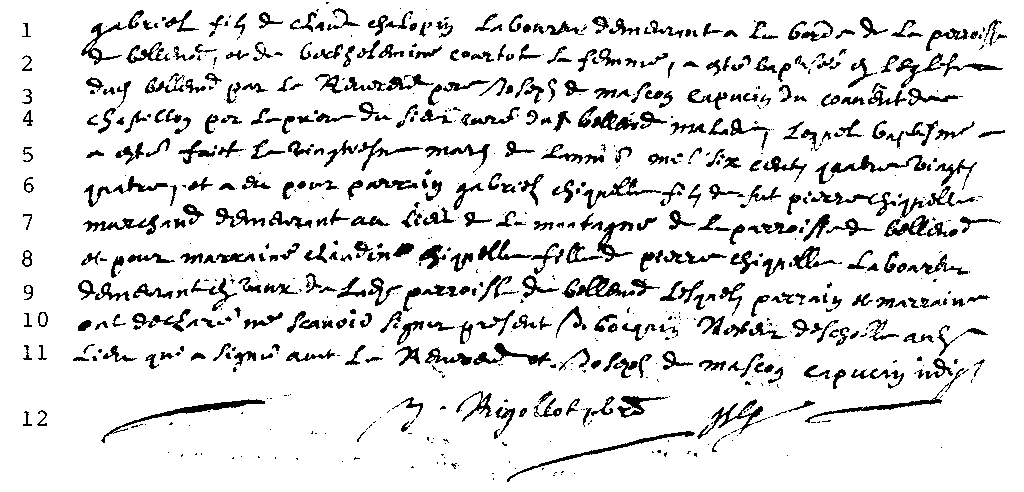 1 gabriel filz de claude chalopin laboureur demeurant a la borde de la parroisse
2 de bellenod, et de berthelemine courtot sa femme, a esté baptisé en leglise
3 dud bellenod par le Reverend pere Joseph de mascon capucin du couvent de
4 chastillon par la priere du sieur curé dud bellenod malade, lequel baptesme
5 a esté faict le vingtiesme mars de lannee mil six cents quatre vingts
6 quatre, et a eu pour parrain gabriel chiquelle filz de fut pierre chiquelle
7 marchand demeurant au lieu de la montagne de la parroisse de bellenod
8 et pour marraine claudine chiquelle fille de pierre chiquelle laboureur
9 demeurant en vaux de lad parroisse de bellenod lesquels parrain et marraine
10 ont declaré ne scavoir signer present Recteur descholle aud
11 lieu qui a signé avec le Reverend Joseph de mascon capucin indig
12 Rigollot pbre